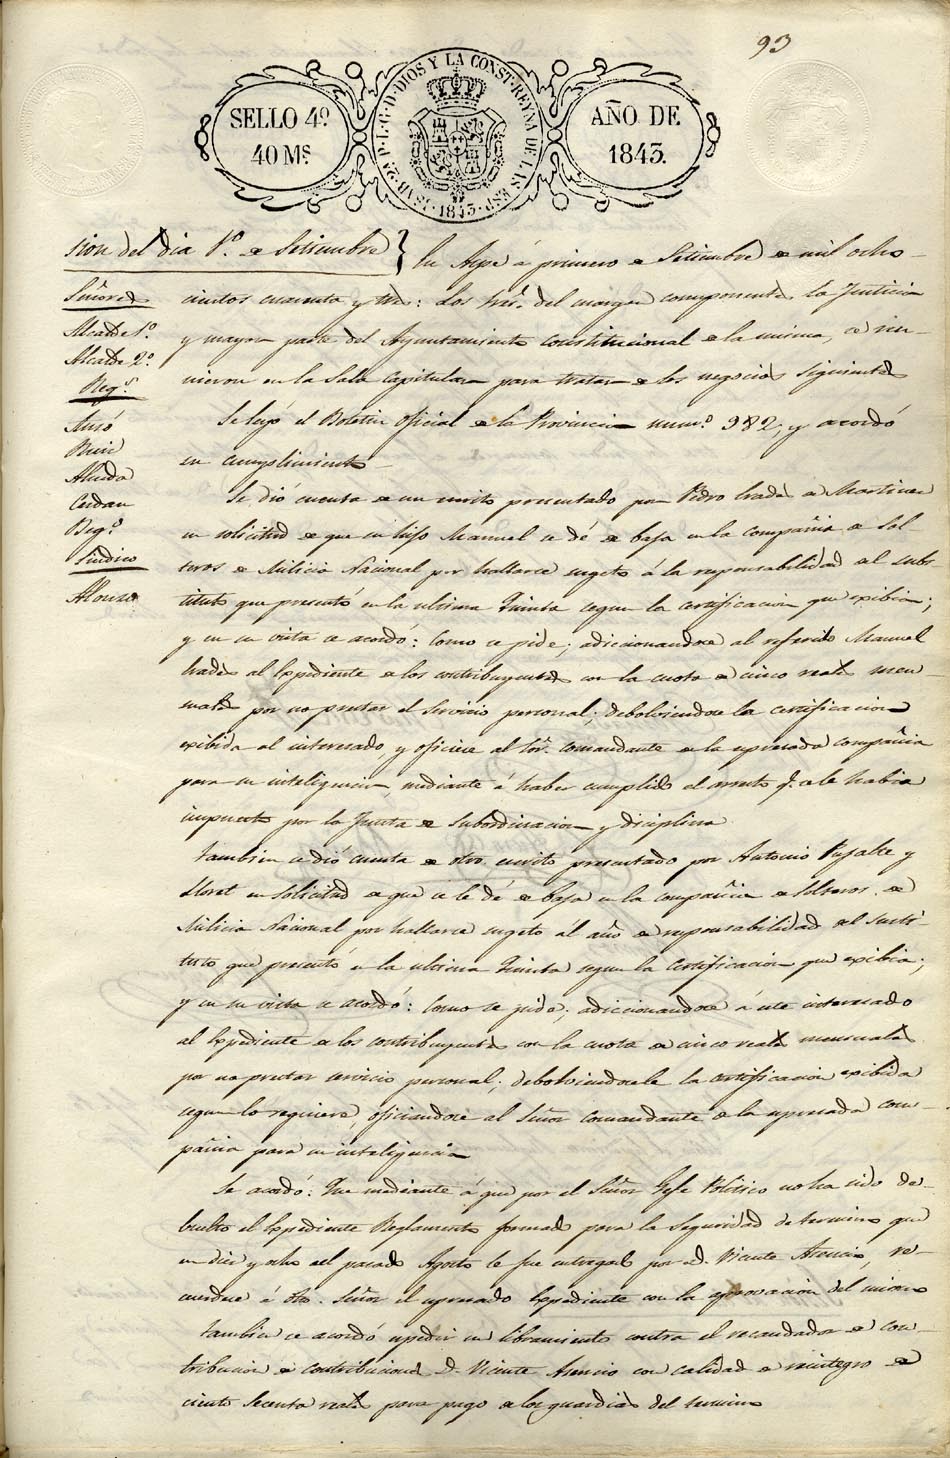 93
SELLO 4º
40 Ms.
ISAB. 2ª P. L. G. D. DIOS Y LA CONST. REYNA DE LAS ESP. 1843
AÑO DE
1843.
sion del dia 1º. de Setiembre
Señores
Alcalde 1º.
Alcalde 2º.
Reg.s
Miró
Brui
Alcida
Cerdan
Reg.º
Sindico
Alonso
En Aspe á primero de Setiembre de mil ocho-
cientos cuarenta y tres: Los Sres. del margen componentes la Justicia
y mayor parte del Ayuntamiento constitucional de la misma, se reu-
nieron en la Sala Capitular para tratar de los negocios siguientes
Se leyó el Boletin oficial de la Provincia num.º 982, y acordó
su cumplimiento
Se dió cuenta de un escrito presentado por Pedro Prades de Martinez
en solicitud de que su hijo Manuel se dé de baja en la compañia de Sol-
teros de Milicia Nacional por hallarse sugeto á la reponsabilidad del subs-
tituto que presentó en la ultima Quinta segun la certificacion que exibia;
y en su vista se acordó: Como se pide; adicionandose al referido Manuel
Prades al Expediente de los contribuyentes con la cuota de cinco reales men-
suales por no prestar el servicio personal; debolviendose la certificacion
exibida al interesado y oficiese al Sor. comandante de la espresada compañia
para su inteligencia, mediante á haber cumplido el arresto q.e se le habia
impuesto por la Junta de Subordinacion y disciplina
Tambien se dió cuenta de otro escrito presentado por Antonio Pujalte y
Lloret en solicitud de que se le dé de baja en la compañia de Solteros de
Milicia Nacional por hallarse sugeto al año de reponsabilidad del susti-
tuto que presentó en la ultima Quinta segun la Certificacion que exibia;
y en su vista se acordó: Como se pide; adiccionandose á este interesado
al Expediente de los contribuyentes con la cuota de cinco reales mensuales
por no prestar servicio personal; debolviendosele la certificacion exibida
segun lo requiere, oficiandose al Señor Comandante de la espresada com-
pañia para su inteligencia
Se acordó: Que mediante á que por el Señor Gefe Politico no ha sido de-
buelto el Expediente Reglamento formado para la seguridad de termino que
en diez y ocho del pasado Agosto le fue entregado por D. Vicente Asencio, re-
cuerdese á dho. Señor el espresado Expediente con la aprovacion del mismo
Tambien se acordó espedir un libramiento contra el recaudador de con-
tribucion de contribuciones D. Vicente Asencio con calidad de reintegro de
ciento Secenta reales para pago de los guardias del termino